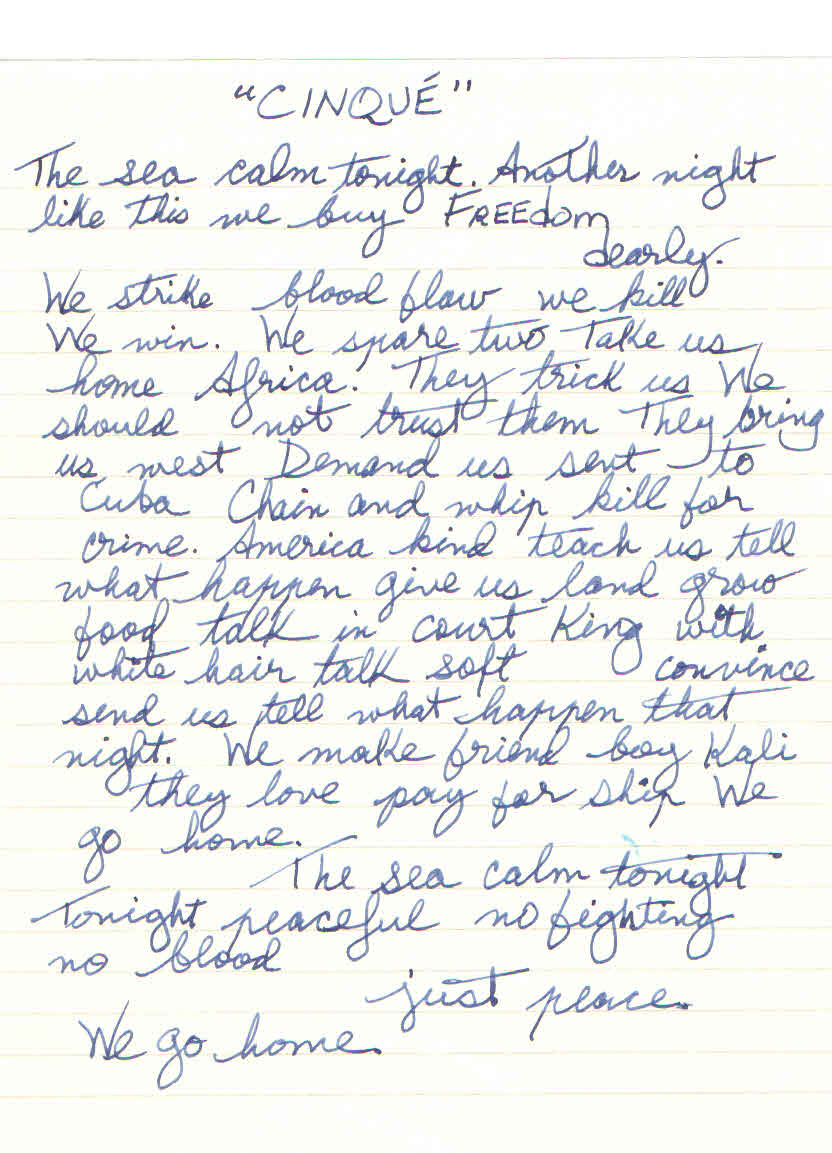 "CINQUÉ"
The sea calm tonight. Another night
like this we buy FREEdom
dearly.
We strike blood flow we kill
We win. We spare two Take us
home Africa. They trick us We
should not trust them They bring
us west Demand us sent to
Cuba Chain and whip kill for
crime. America kind teach us tell
what happen give us land grow
food talk in court King with
white hair talk soft convince
send us tell what happen that
night. We make friend boy Kali
they love pay for ship We
go home.
The sea calm tonight
Tonight peaceful no fighting
no blood
just peace.
We go home.